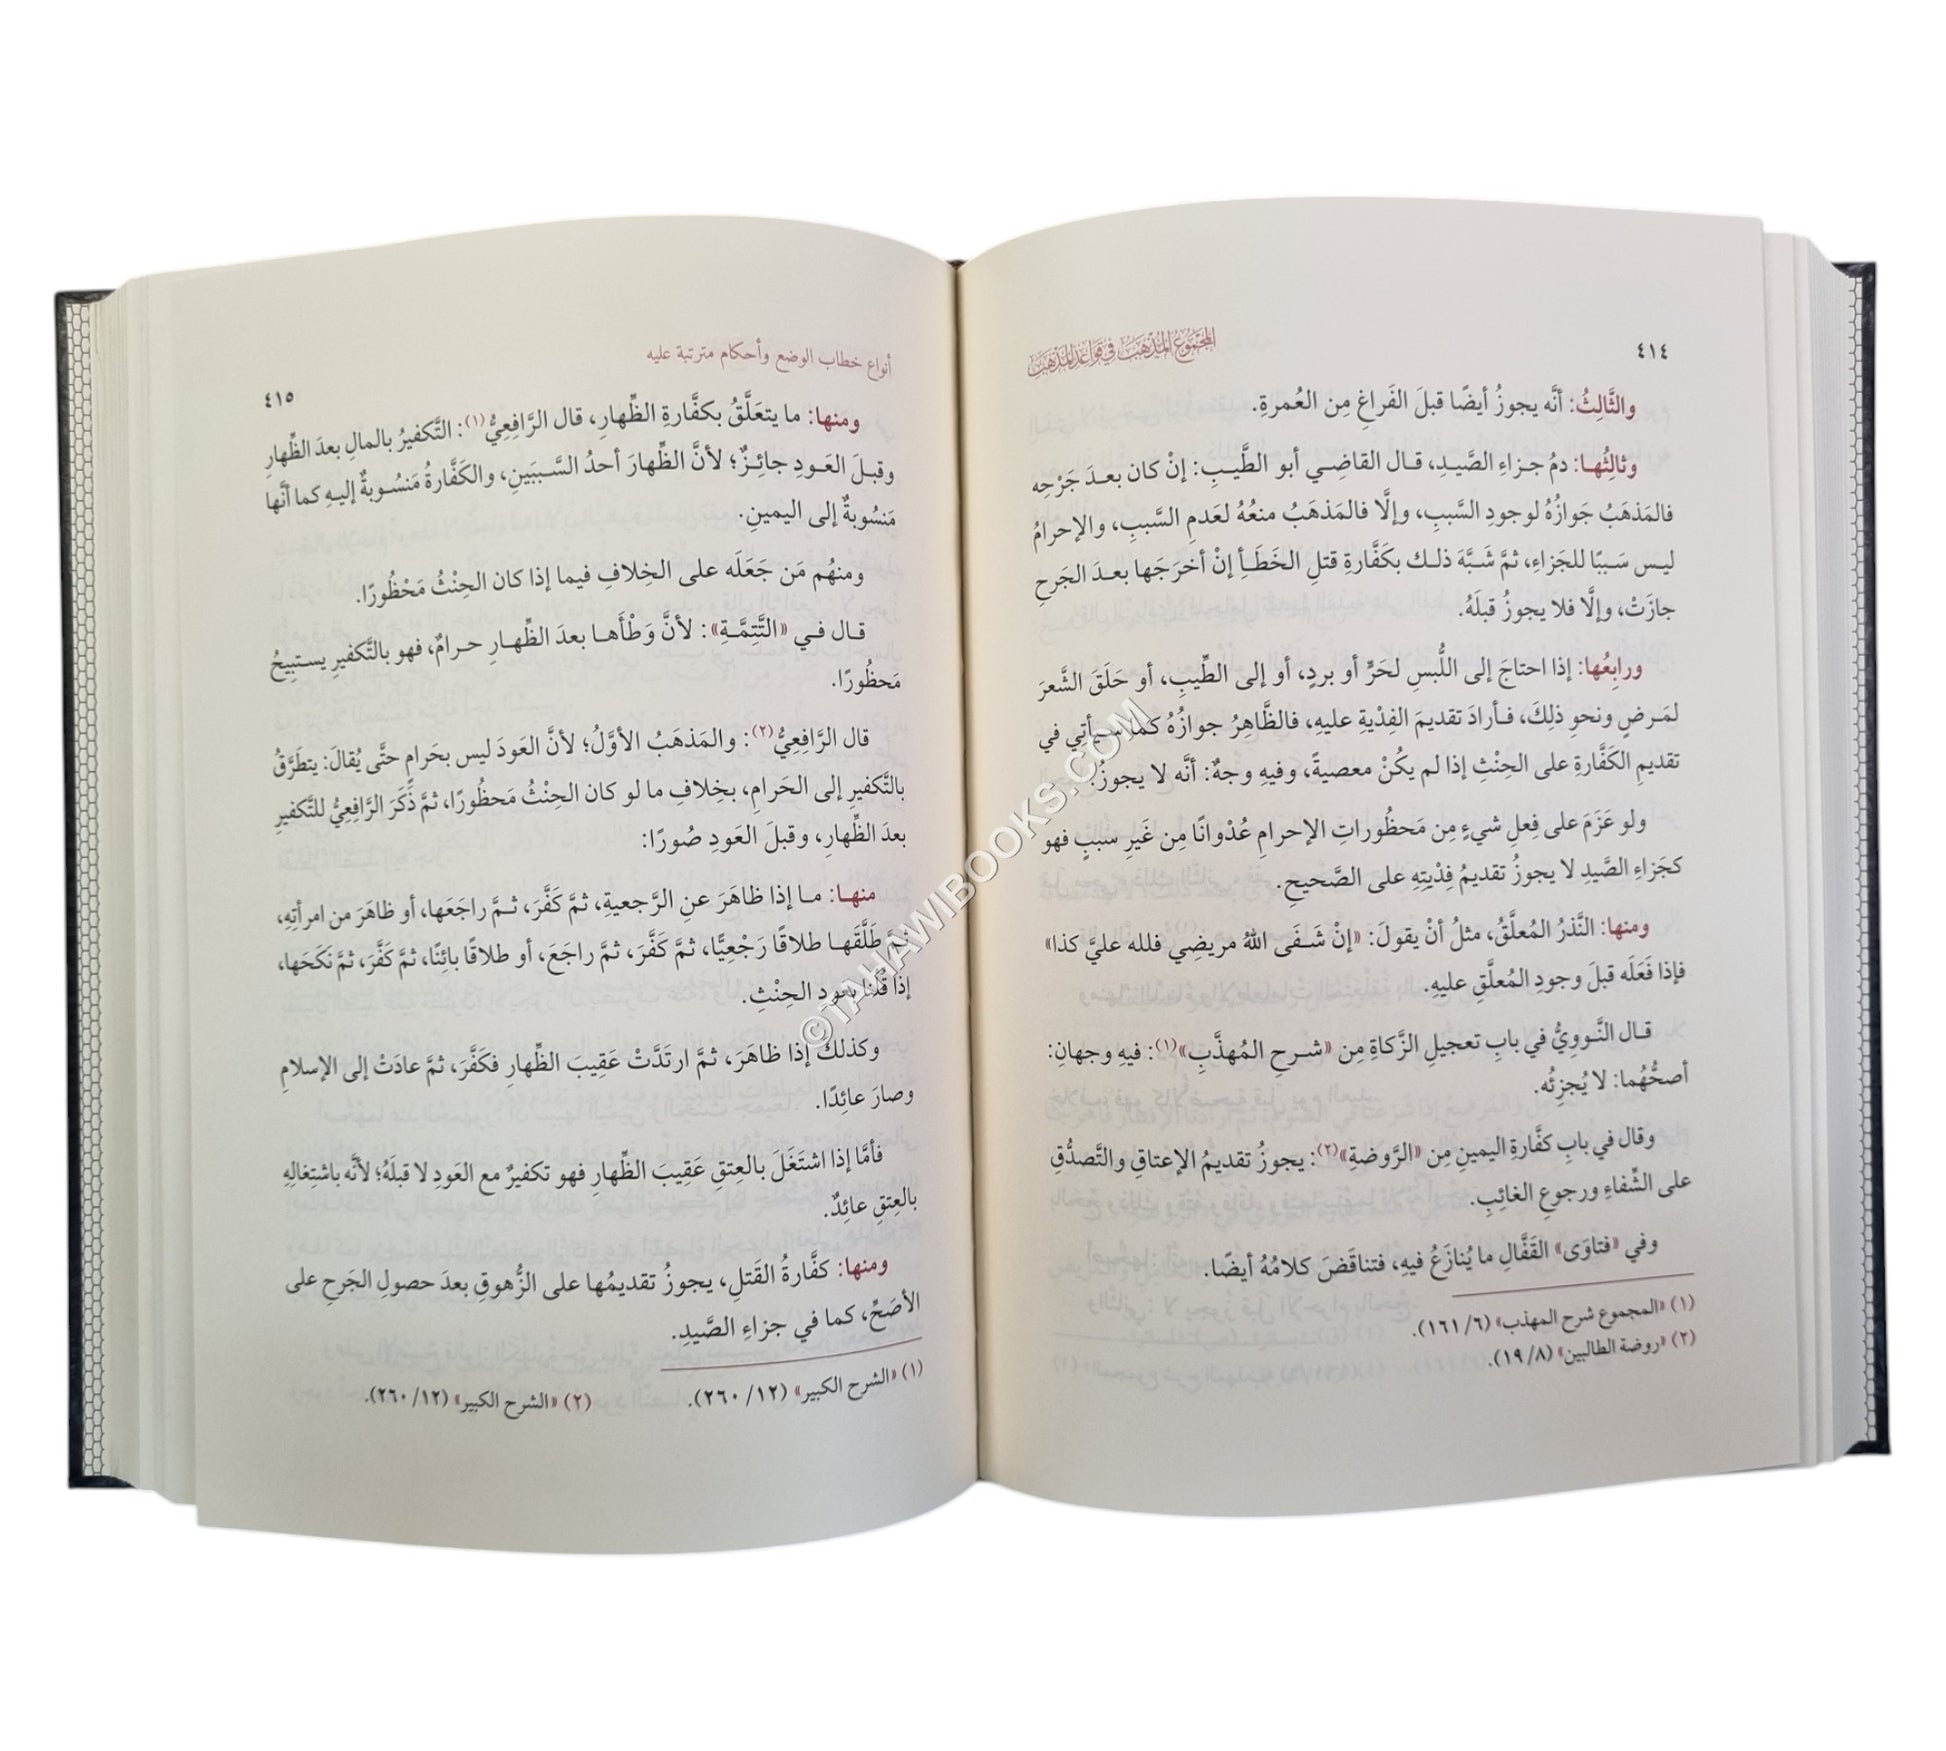 ٤١٤
المجموع المذهب في قواعد المذهب
والثَّالِثُ: أنَّه يجوزُ أيضًا قبلَ الفَراغِ مِن العُمرةِ.
وثالِثُها: دمُ جزاءِ الصَّيدِ، قال القاضِي أبو الطَّيبِ: إنْ كان بعدَ جَرْحِه
فالمَذهَبُ جَوازُهُ لوجودِ السَّببِ، وإلَّا فالمَذهَبُ منعُهُ لعَدمِ السَّببِ، والإحرامُ
ليس سَببًا للجَزاءِ، ثمَّ شَبَّهَ ذلك بكَفَّارةِ قتلِ الخَطَأِ إنْ أخرَجَها بعدَ الجَرحِ
جازَتْ، وإلَّا فلا يجوزُ قبلَهُ.
ورابِعُها: إذا احتاجَ إلى اللُّبسِ لحَرٍّ أو بردٍ، أو إلى الطِّيبِ، أو حَلَقَ الشَّعرَ
لمَرضٍ ونحوِ ذلِكَ، فأرادَ تقديمَ الفِديةِ عليهِ، فالظَّاهِرُ جوازُهُ كما سيأتِي في
تقديمِ الكَفَّارةِ على الحِنْثِ إذا لم يكُنْ معصيةً، وفيهِ وجهٌ: أنَّه لا يجوزُ.
ولو عَزَمَ على فِعلِ شيءٍ مِن مَحظُوراتِ الإحرامِ عُدْوانًا مِن غَيرِ سببٍ فهو
كجَزاءِ الصَّيدِ لا يجوزُ تقديمُ فِدْيتِهِ على الصَّحيحِ.
ومنها: النَّذرُ المُعلَّقُ، مثلُ أنْ يقولَ: «إنْ شَفَى اللهُ مريضِي فلله عليَّ كذا»
فإذا فَعَلَه قبلَ وجودِ المُعلَّقِ عليهِ.
قال النَّوويُّ في بابِ تعجيلِ الزَّكاةِ مِن «شرحِ المُهذَّبِ»(١): فيهِ وجهانِ:
أصحُّهُما: لا يُجزِئُه.
وقال في بابِ كفَّارةِ اليمينِ مِن «الرَّوضةِ»(٢): يجوزُ تقديمُ الإعتاقِ والتَّصدُّقِ
على الشِّفاءِ ورجوعِ الغائِبِ.
وفي «فتاوَى» القَفَّالِ ما يُنازَعُ فيهِ، فتناقَضَ كلامُهُ أيضًا.
(١) «المجموع شرح المهذب» (٦/ ١٦١).
(٢) «روضة الطالبين» (٨/ ١٩).
أنواع خطاب الوضع وأحكام مترتبة عليه
٤١٥
ومنها: ما يتعَلَّقُ بكفَّارةِ الظِّهارِ، قال الرَّافِعِيُّ(١): التَّكفيرُ بالمالِ بعدَ الظِّهارِ
وقبلَ العَودِ جائِزٌ؛ لأنَّ الظِّهارَ أحدُ السَّببَينِ، والكَفَّارةُ مَنسُوبةٌ إليهِ كما أنَّها
مَنسُوبةٌ إلى اليمينِ.
ومنهُم مَن جَعَلَه على الخِلافِ فيما إذا كان الحِنْثُ مَحْظُورًا.
قال في «التَّتِمَّةِ»: لأنَّ وَطْأَها بعدَ الظِّهارِ حرامٌ، فهو بالتَّكفيرِ يستبِيحُ
مَحظُورًا.
قال الرَّافِعِيُّ(٢): والمَذهَبُ الأوَّلُ؛ لأنَّ العَودَ ليس بحَرامٍ حتَّى يُقالَ: يتطَرَّقُ
بالتَّكفيرِ إلى الحَرامِ، بخِلافِ ما لو كان الحِنْثُ مَحظُورًا، ثمَّ ذَكَرَ الرَّافِعِيُّ للتَّكفيرِ
بعدَ الظِّهارِ، وقبلَ العَودِ صُورًا:
منها: ما إذا ظاهَرَ عنِ الرَّجعيةِ، ثمَّ كَفَّرَ، ثمَّ راجَعَها، أو ظاهَرَ من امرأتِهِ،
ثمَّ طَلَّقَها طلاقًا رَجْعِيًّا، ثمَّ كَفَّرَ، ثمَّ راجَعَ، أو طلاقًا بائِنًا، ثمَّ كَفَّرَ، ثمَّ نَكَحَها،
إذا قُلْنا بعودِ الحِنْثِ.
وكذلك إذا ظاهَرَ، ثمَّ ارتَدَّتْ عَقِيبَ الظِّهارِ فكَفَّرَ، ثمَّ عادَتْ إلى الإسلامِ
وصارَ عائِدًا.
فأمَّا إذا اشتَغَلَ بالعِتقِ عَقِيبَ الظِّهارِ فهو تكفيرٌ مع العَودِ لا قبلَهُ؛ لأنَّه باشتِغالِهِ
بالعِتقِ عائِدٌ.
ومنها: كفَّارةُ القَتلِ، يجوزُ تقديمُها على الزُّهوقِ بعدَ حصولِ الجَرحِ على
الأصَحِّ، كما في جزاءِ الصَّيدِ.
(١) «الشرح الكبير» (١٢/ ٢٦٠).
(٢) «الشرح الكبير» (١٢/ ٢٦٠).
©TAHAWIBOOKS.COM